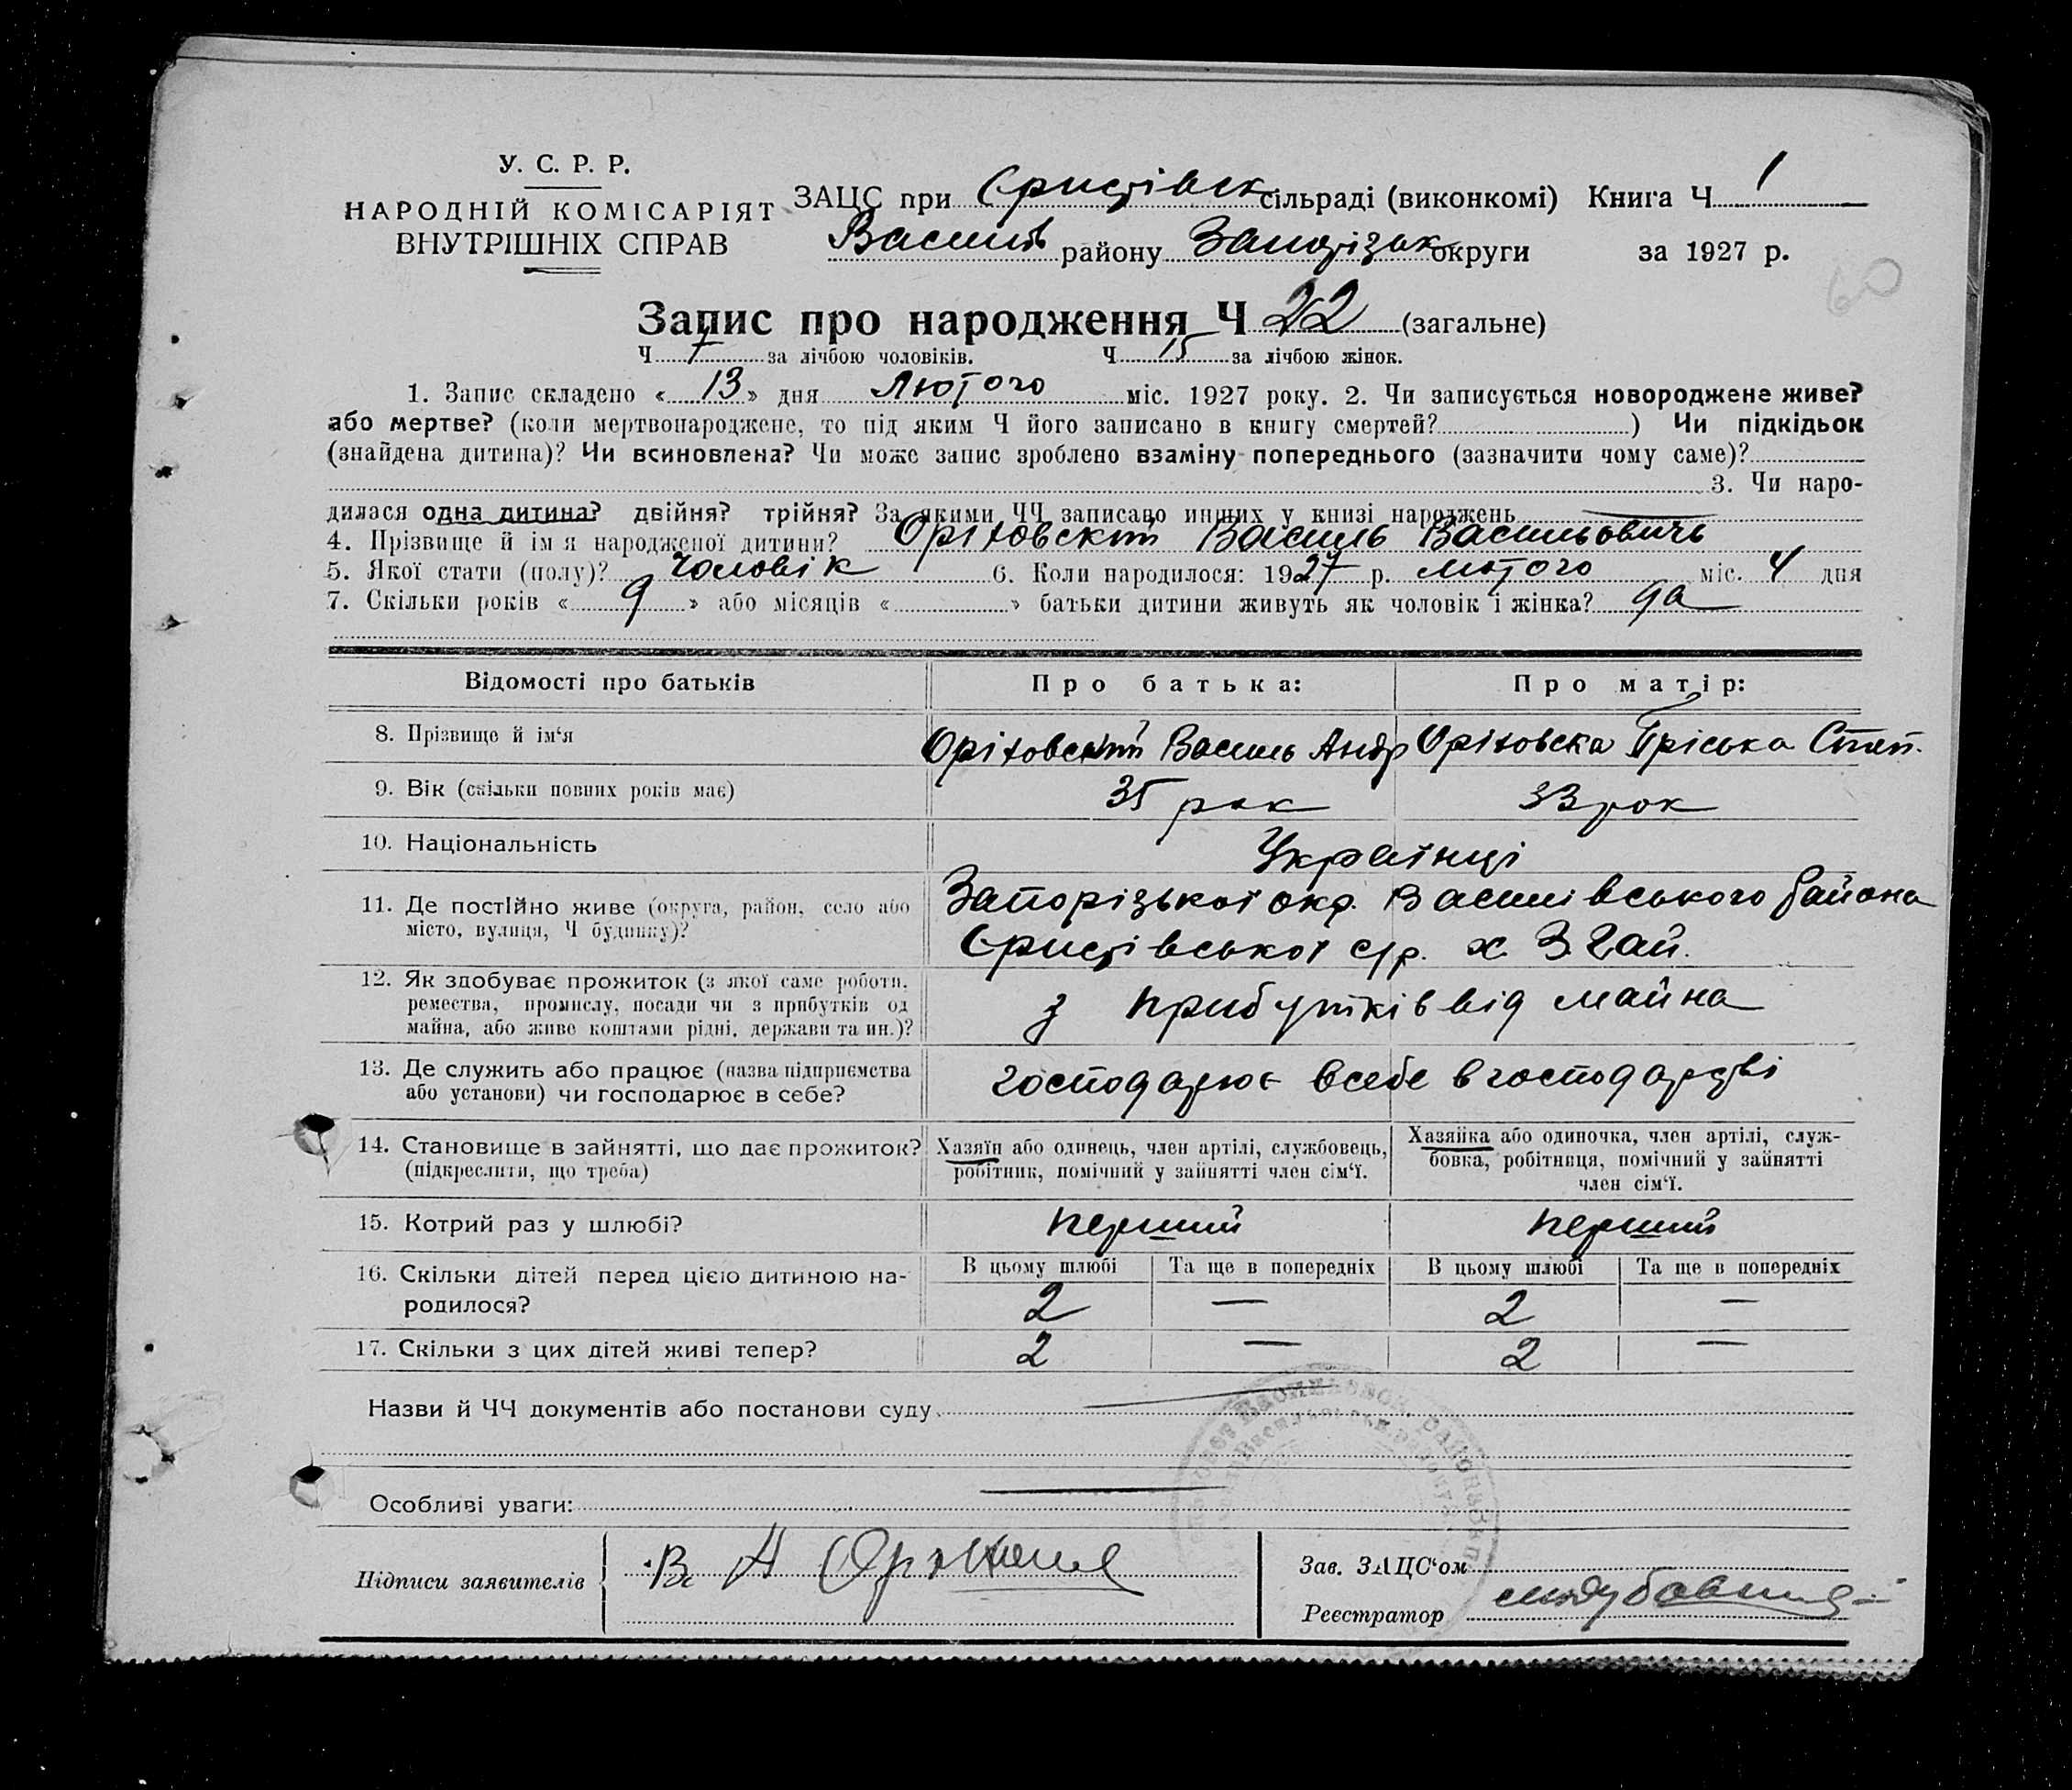 У. С. Р. Р.
НАРОДНІЙ КОМІСАРІЯТ
ВНУТРІШНІХ СПРАВ
ЗАЦС при сільраді (виконкомі) Книга Ч 1
Василів району Запорізьк округи за 1927 р.
60
Запис про народження Ч 22 (загальне)
Ч 7 за лічбою чоловіків. Ч 15 за лічбою жінок.
1. Запис складено « 13 » дня Лютого міс. 1927 року. 2. Чи записується новороджене живе?
або мертве? (коли мертвонароджене, то під яким Ч його записано в книгу смертей? ) Чи підкідьок
(знайдена дитина)? Чи всиновлена? Чи може запис зроблено взаміну попереднього (зазначити чому саме)?
3. Чи наро-
дилася одна дитина? двійня? трійня? За якими ЧЧ записано инших у книзі народжень —
4. Прізвище й ім я народженої дитини? Оріховский Василь Васильовичь
5. Якої стати (полу)? Чоловік 6. Коли народилося: 1927 р. лютого міс. 4 дня
7. Скільки років « 9 » або місяців « » батьки дитини живуть як чоловік і жінка? да
Відомості про батьків Про батька: Про матір:
8. Прізвище й ім‘я Оріховский Василь Андр Оріховска Пріська Степ.
9. Вік (скільки повних років має) 35 рок 33 рок
10. Національність Українці
11. Де постійно живе (округа, район, село або Запорізької окр. Василівського району
місто, вулиця, Ч будинку)? с/р. х. Згай.
12. Як здобуває прожиток (з якої саме роботи,
ремества, промислу, посади чи з прибутків од з прибутків від майна
майна, або живе коштами рідні, держави та ин.)?
13. Де служить або працює (назва підприємства господарює всебе в господарстві
або установи) чи господарює в себе?
14. Становище в зайнятті, що дає прожиток? Хазяїн або одинець, член артілі, службовець, Хазяйка або одиночка, член артілі, служ-
(підкреслити, що треба) робітник, помічний у зайнятті член сім‘ї. бовка, робітниця, помічний у зайнятті
член сім‘ї.
15. Котрий раз у шлюбі? перший перший
16. Скільки дітей перед цією дитиною на- В цьому шлюбі Та ще в попередніх В цьому шлюбі Та ще в попередніх
родилося? 2 — 2 —
17. Скільки з цих дітей живі тепер? 2 — 2 —
Назви й ЧЧ документів або постанови суду —
Особливі уваги: —
Підписи заявителів В А
Зав. ЗАЦС‘ом
Реєстратор